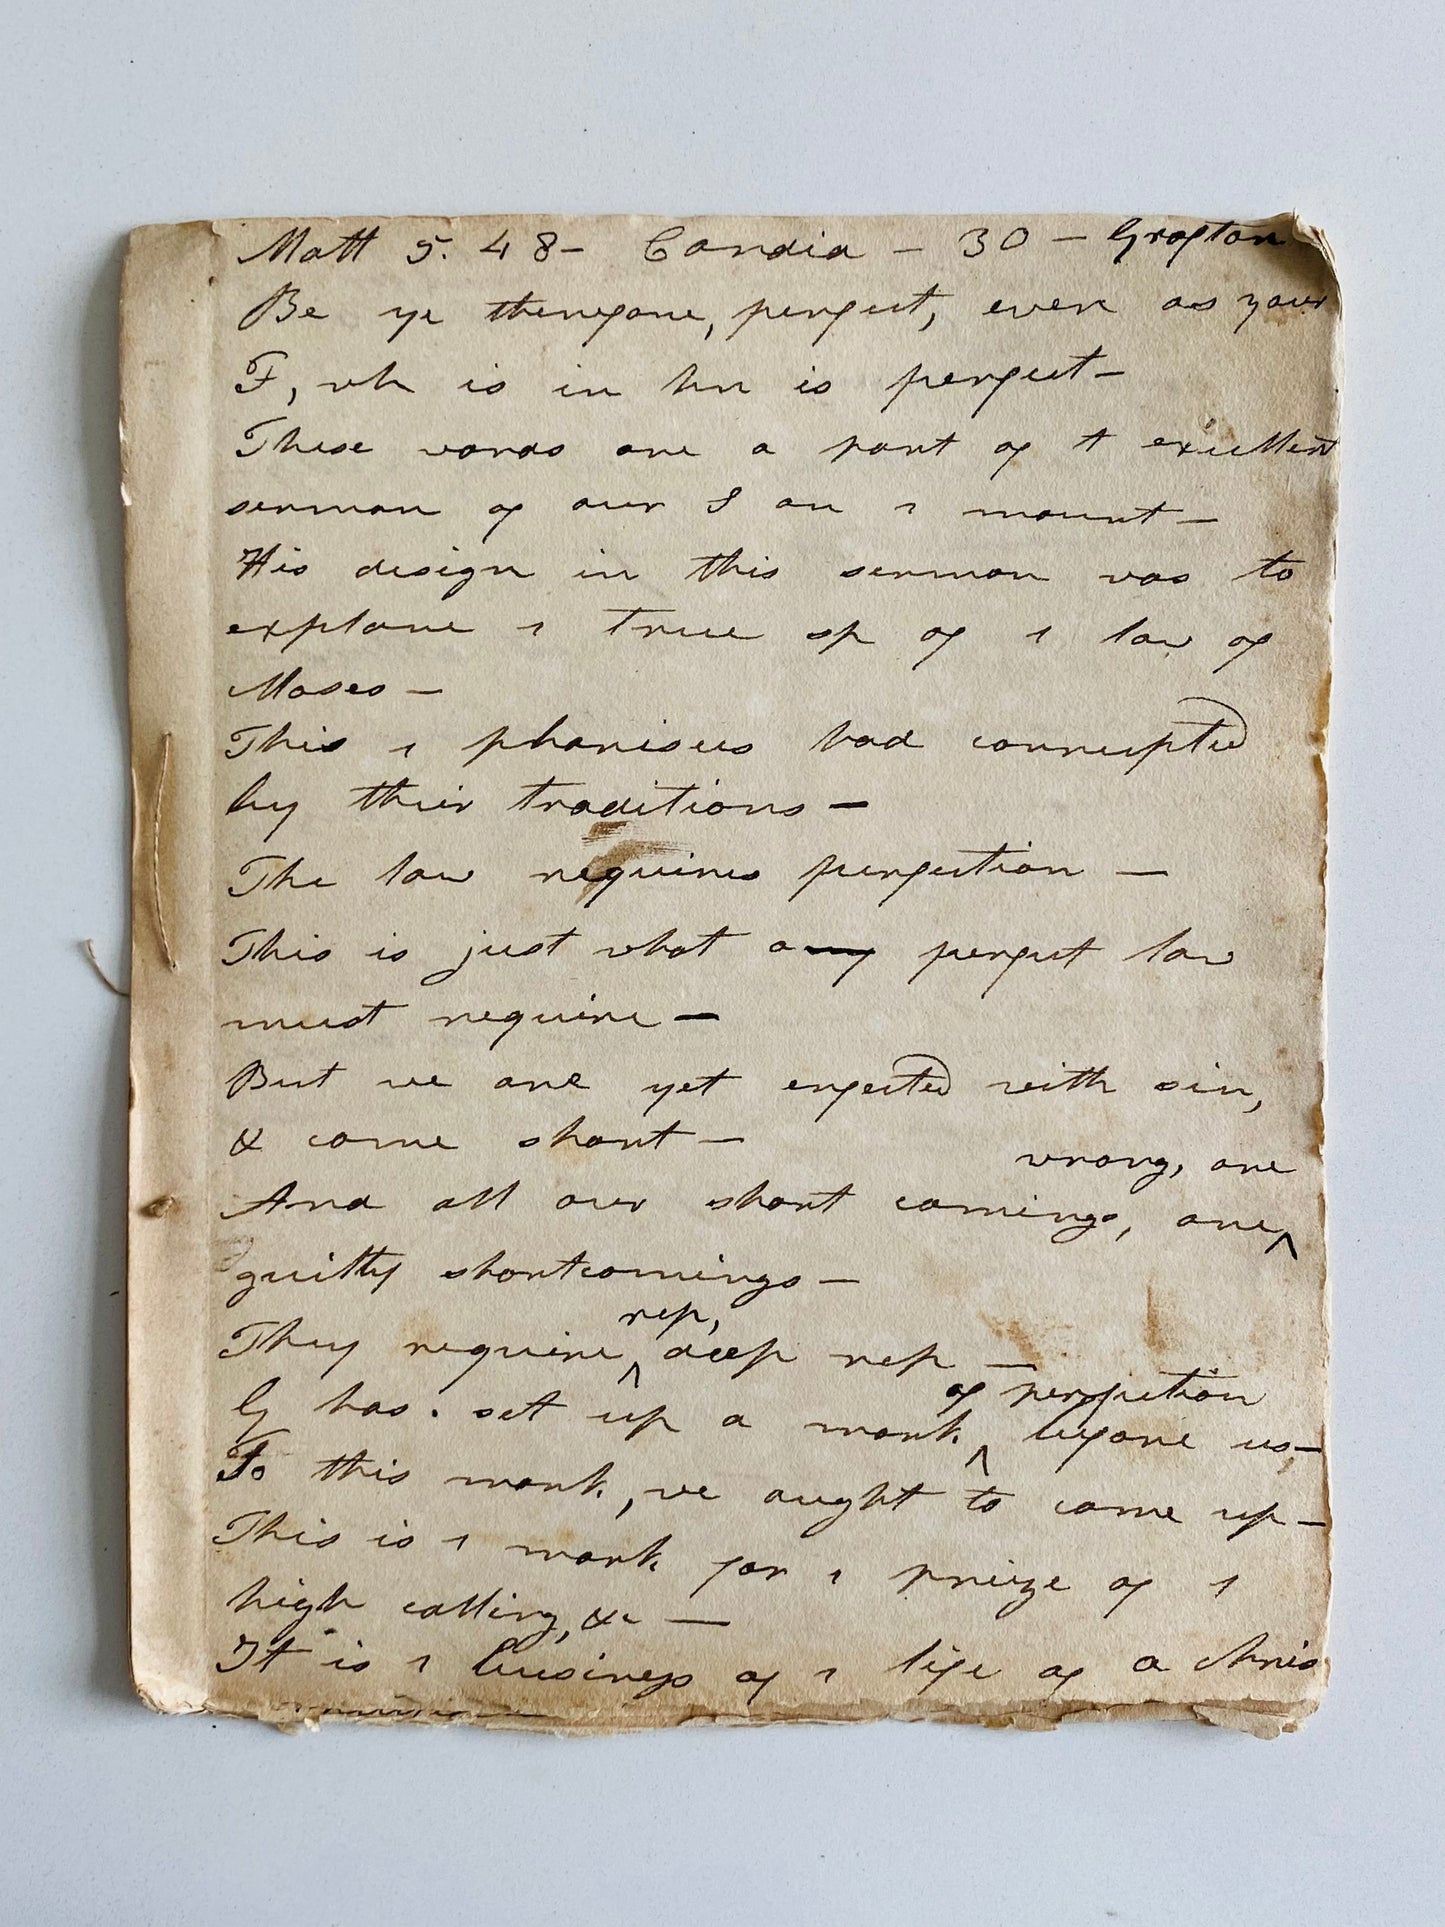 Matt 5. 48 - Candia - 30 - Grafton
Be ye therefore, perfect, even as your
F, wh is in hn is perfect -
These words are a part of t excellent
sermon of our S on 1 mount -
His design in this sermon was to
explane 1 true sp of 1 law of
Moses -
This 1 pharisees had corrupted
by their traditions -
The law requires perfection -
This is just what any perfect law
must require -
But we are yet enfected with sin,
& come short -
wrong, are
And all our short comings, are ^
guilty shortcomings -
rep,
They require ^ deep rep -
of perfection
G has . set up a mark ^ before us, -
To this mark, we aught to come up -
This is 1 mark for 1 prieze of 1
high calling, &c -
It is 1 business of 1 life of a chris